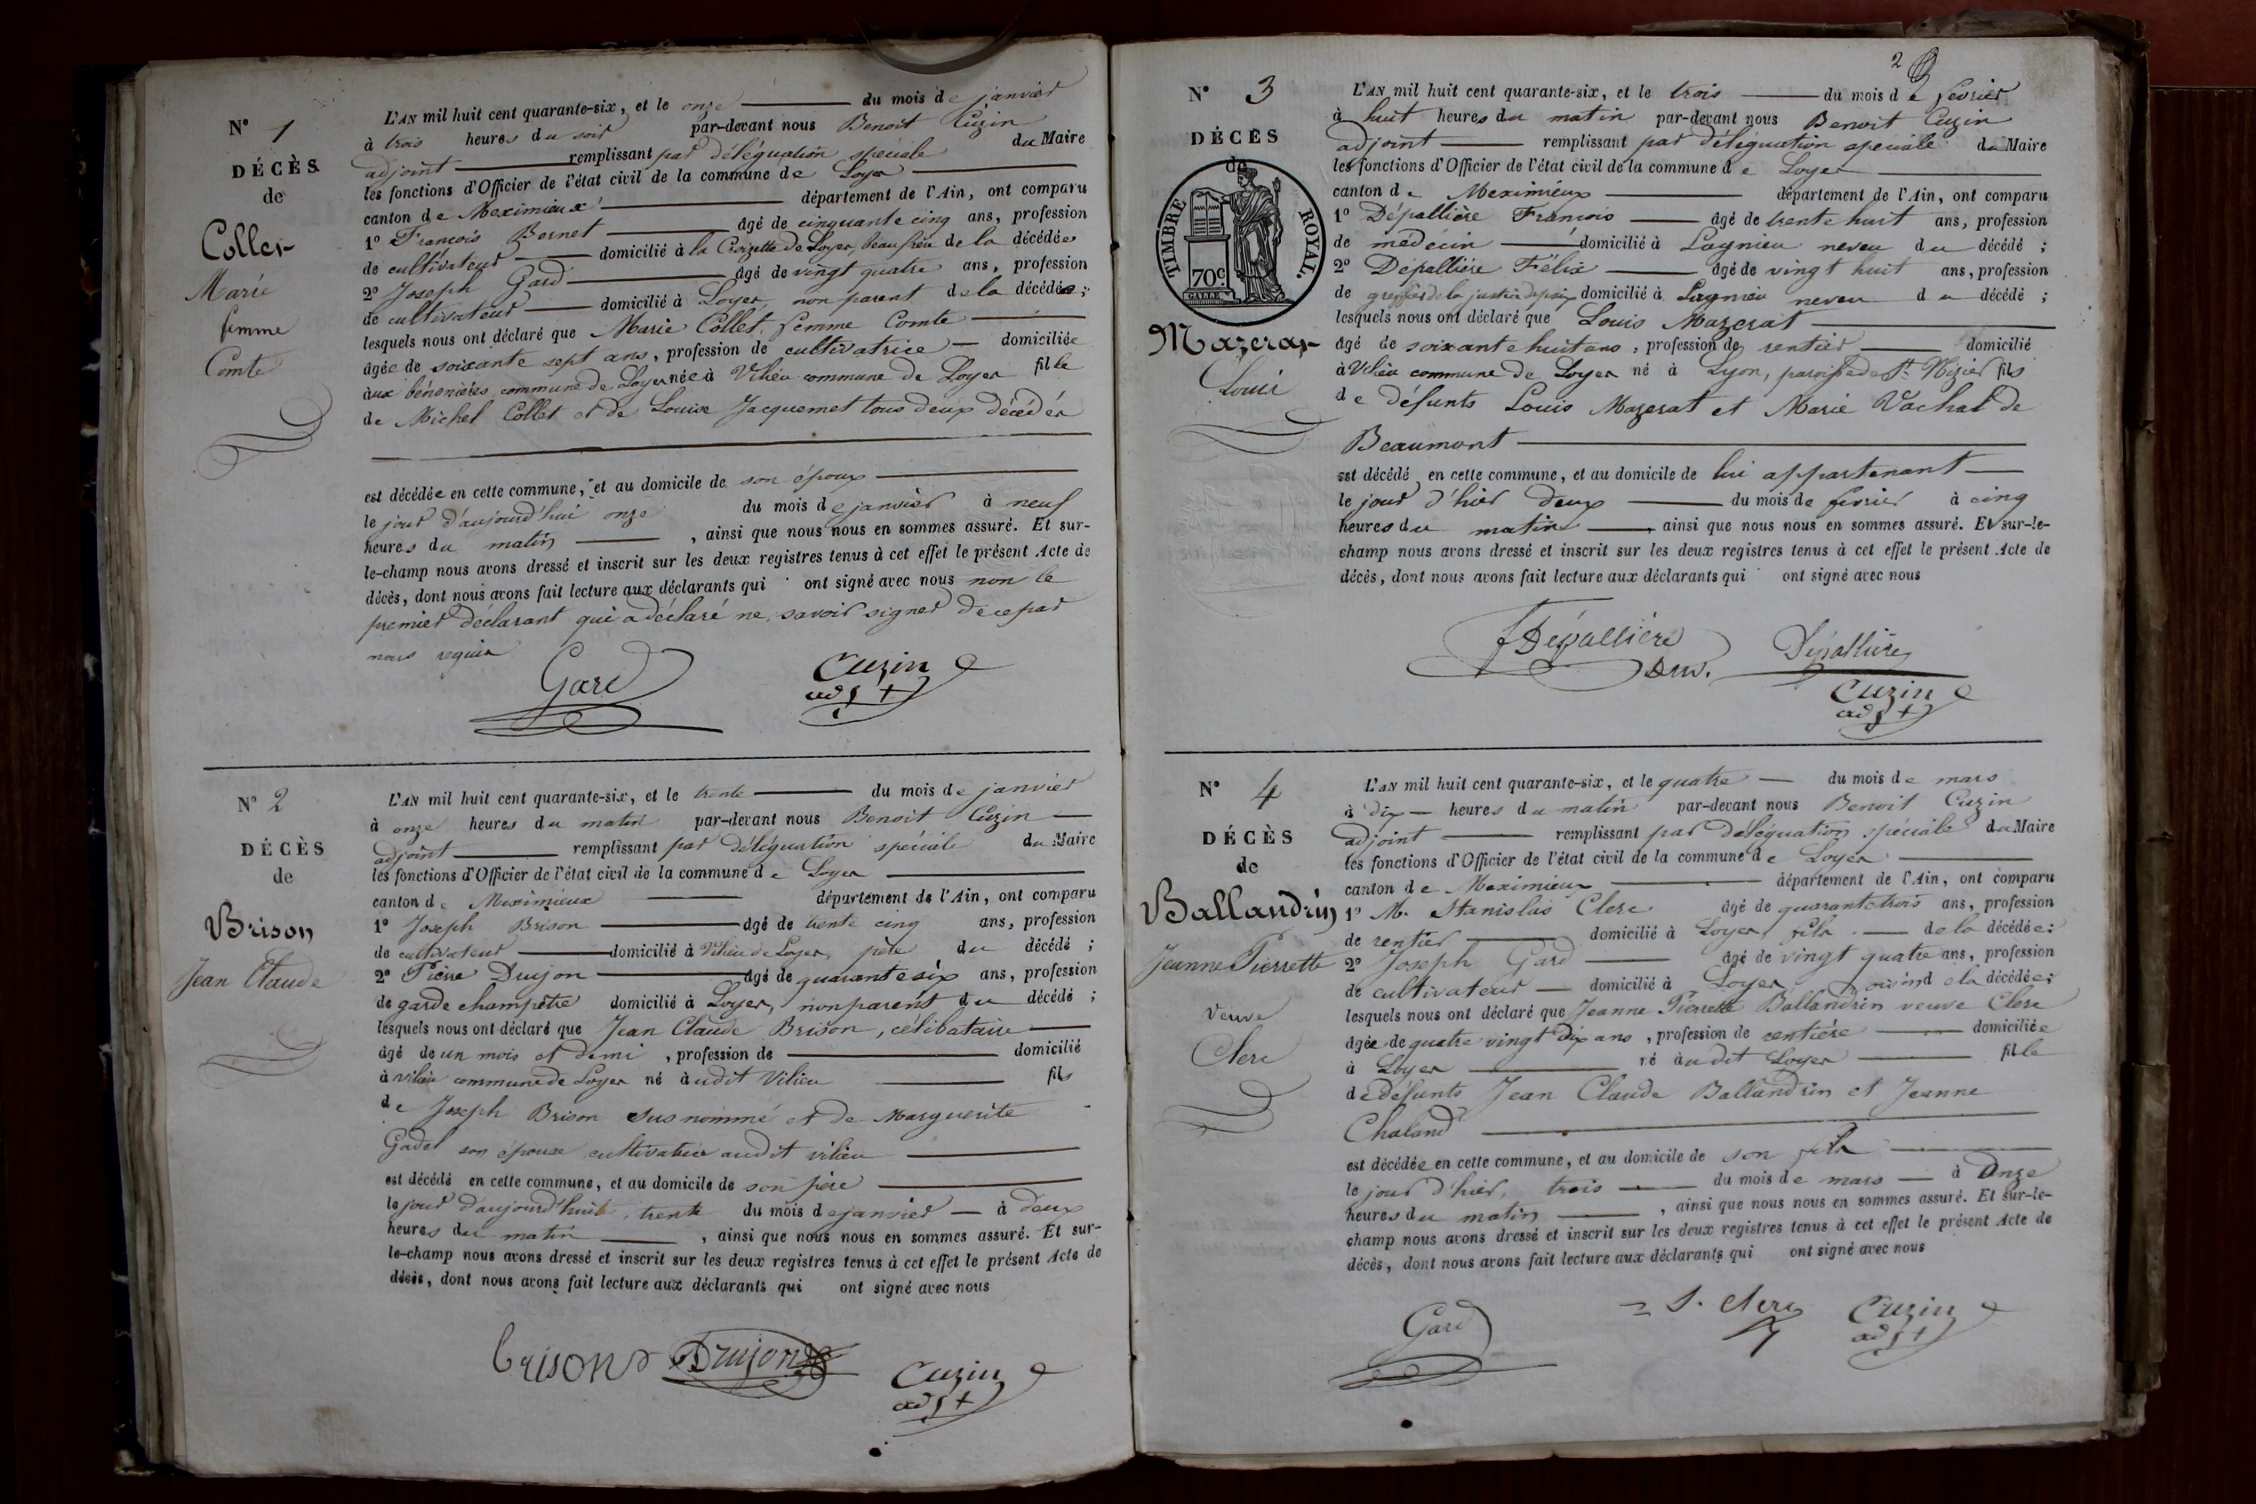 N° 1
DÉCÈS
de
Collet
Marie
femme
Comte
L'AN mil huit cent quarante-six, et le onze du mois de janvier
à trois heures du soir par-devant nous Benoit Cuzin
adjoint remplissant par déléguation spéciale du Maire
les fonctions d'Officier de l'état civil de la commune de Loyes
canton de Meximieux département de l'Ain, ont comparu
1° François Bernet âgé de cinquante cinq ans, profession
de cultivateur domicilié à la Crozette de Loyes, beau frère de la décédée
2° Joseph Gard âgé de vingt quatre ans, profession
de cultivateur domicilié à Loyes, non parent de la décédée;
lesquels nous ont déclaré que Marie Collet, femme Comte
âgée de soixante sept ans, profession de cultivatrice domiciliée
aux commune de Loyes née à Vilieu commune de Loyes fille
de Michel Collet et de Louise Jacquemet tous deux décédés
est décédée en cette commune, et au domicile de son époux
le jour d'aujourd'hui onze du mois de janvier à neuf
heures du matin, ainsi que nous nous en sommes assuré. Et sur-
le-champ nous avons dressé et inscrit sur les deux registres tenus à cet effet le présent Acte de
décès, dont nous avons fait lecture aux déclarants qui ont signé avec nous non le
premier déclarant qui a déclaré ne savoir signer de ce par
nous requis
Gard Cuzin
adjt
N° 2
DÉCÈS
de
Brison
Jean Claude
L'AN mil huit cent quarante-six, et le trente du mois de janvier
à onze heures du matin par-devant nous Benoit Cuzin
adjoint remplissant par déléguation spéciale du Maire
les fonctions d'Officier de l'état civil de la commune de Loyes
canton de Meximieux département de l'Ain, ont comparu
1° Joseph Brison âgé de trente cinq ans, profession
de cultivateur domicilié à Vilieu de Loyes, père du décédé;
2° Pierre Drujon âgé de quarante six ans, profession
de garde champêtre domicilié à Loyes, non parent du décédé;
lesquels nous ont déclaré que Jean Claude Brison, célibataire
âgé de un mois et demi, profession de domicilié
à Vilieu commune de Loyes né audit Vilieu fils
de Joseph Brison susnommé et de Marguerite
Gadet son épouse cultivatrice audit vilieu
est décédé en cette commune, et au domicile de son père
le jour d'aujourd'hui, trente du mois de janvier à deux
heures du matin, ainsi que nous nous en sommes assuré. Et sur-
le-champ nous avons dressé et inscrit sur les deux registres tenus à cet effet le présent Acte de
décès, dont nous avons fait lecture aux déclarants qui ont signé avec nous
brison Drujon Cuzin
adjt
2
N° 3
DÉCÈS
de
TIMBRE ROYAL.
70c
Mazerat
Louis
L'AN mil huit cent quarante-six, et le trois du mois de février
à huit heures du matin par-devant nous Benoit Cuzin
adjoint remplissant par déléguation spéciale du Maire
les fonctions d'Officier de l'état civil de la commune de Loyes
canton de Meximieux département de l'Ain, ont comparu
1° Dépallière François âgé de trente huit ans, profession
de médecin domicilié à Lagnieu neveu du décédé;
2° Dépallière Félix âgé de vingt huit ans, profession
de greffier de la justice de paix domicilié à Lagnieu neveu du décédé;
lesquels nous ont déclaré que Louis Mazerat
âgé de soixante huit ans, profession de rentier domicilié
à Vilieu commune de Loyes né à Lyon, paroisse de St. Nizier fils
de défunts Louis Mazerat et Marie Vachat de
Beaumont
est décédé en cette commune, et au domicile de lui appartenant
le jour d'hier deux du mois de février à cinq
heures du matin, ainsi que nous nous en sommes assuré. Et sur-le-
champ nous avons dressé et inscrit sur les deux registres tenus à cet effet le présent Acte de
décès, dont nous avons fait lecture aux déclarants qui ont signé avec nous
F Dépallière Dépallière
Cuzin
adjt
N° 4
DÉCÈS
de
Ballandrin
Jeanne Pierrette
veuve
Clerc
L'AN mil huit cent quarante-six, et le quatre du mois de mars
à dix heures du matin par-devant nous Benoit Cuzin
adjoint remplissant par déléguation spéciale du Maire
les fonctions d'Officier de l'état civil de la commune de Loyes
canton de Meximieux département de l'Ain, ont comparu
1° M. Stanislas Clerc âgé de quarante trois ans, profession
de rentier domicilié à Loyes, fils de la décédée:
2° Joseph Gard âgé de vingt quatre ans, profession
de cultivateur domicilié à Loyes voisin de la décédée;
lesquels nous ont déclaré que Jeanne Pierrette Ballandrin veuve Clerc
âgée de quatre vingt dix ans, profession de rentière domiciliée
à Loyes né audit Loyes fille
de défunts Jean Claude Ballandrin et Jeanne
Chaland
est décédée en cette commune, et au domicile de son fils
le jour d'hier, trois du mois de mars à onze
heures du matin, ainsi que nous nous en sommes assuré. Et sur-le-
champ nous avons dressé et inscrit sur les deux registres tenus à cet effet le présent Acte de
décès, dont nous avons fait lecture aux déclarants qui ont signé avec nous
Gard S. Clerc Cuzin
adjt